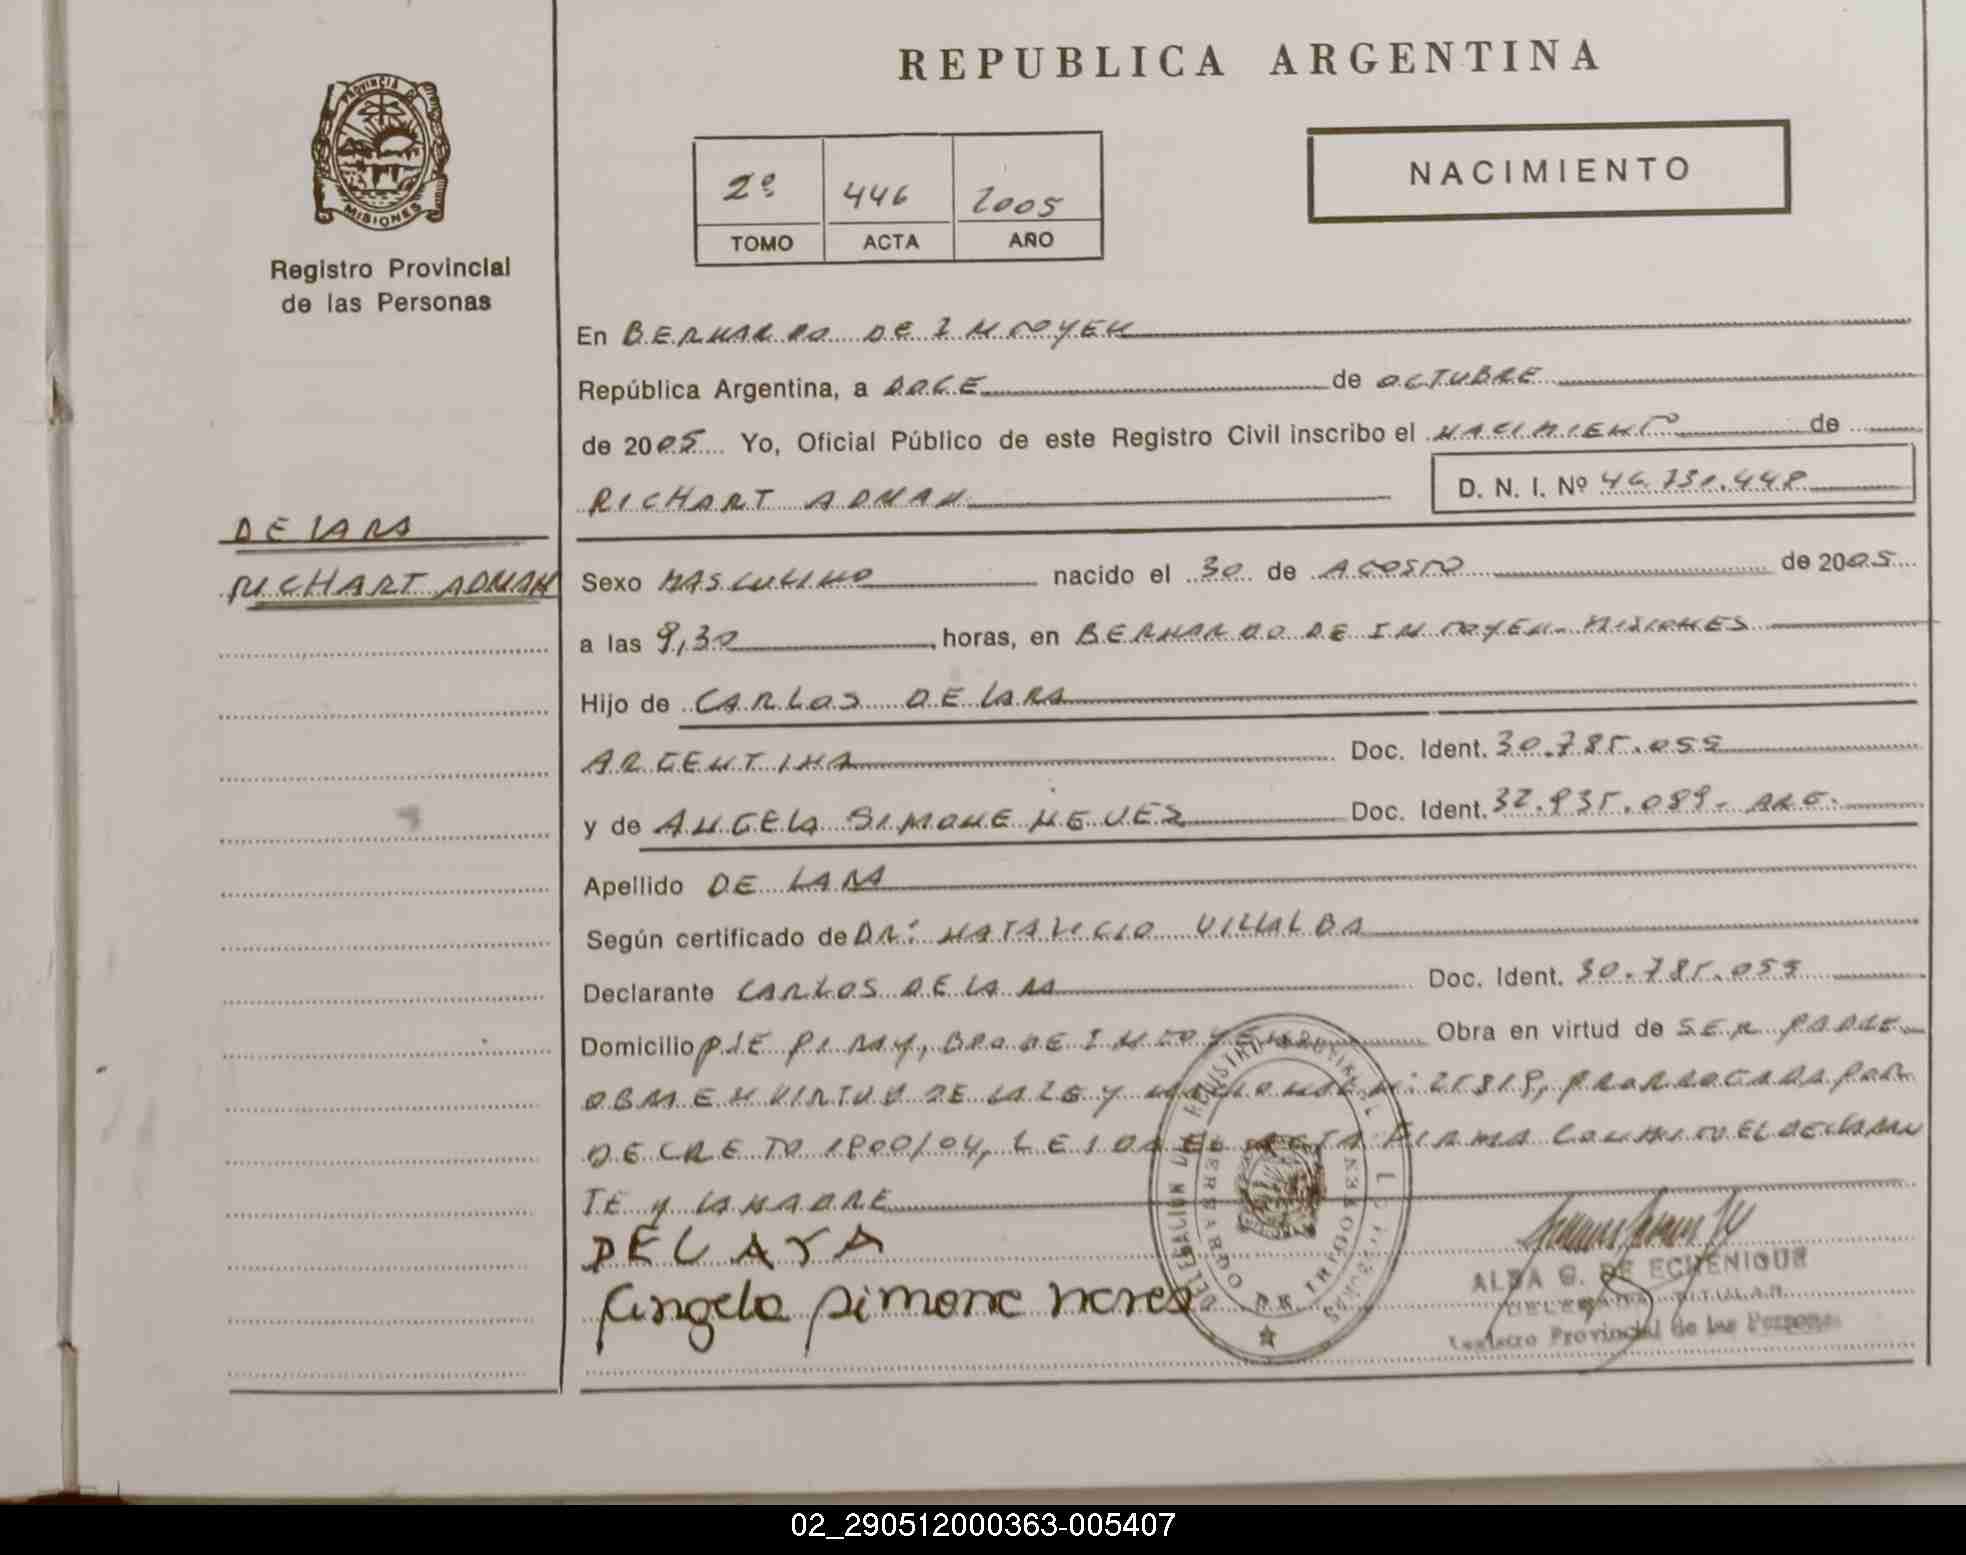 REPUBLICA ARGENTINA
PROVINCIA DE
MISIONES
Registro Provincial
de las Personas
2º 446 2005
TOMO ACTA AÑO
NACIMIENTO
En BERNARDO DE IRIGOYEN
República Argentina, a DOCE de OCTUBRE
de 2005 Yo, Oficial Público de este Registro Civil inscribo el NACIMIENTO de
RICHART ADNAN
D. N. I. Nº 46.731.448
DE LARA
RICHART ADNAN
Sexo MASCULINO nacido el 30 de AGOSTO de 2005
a las 9,30 horas, en BERNARDO DE IRIGOYEN-MISIONES
Hijo de CARLOS DE LARA
ARGENTINA Doc. Ident. 30.785.055
y de ANGELA SIMONE NEVES Doc. Ident. 32.935.089- ARG.
Apellido DE LARA
Según certificado de DR: NATALICIO VILLALBA
Declarante CARLOS DE LARA Doc. Ident. 30.785.055
Domicilio PJE PIRAY, BDO DE IRIGOYEN Obra en virtud de SER PADRE
OBRA EN VIRTUD DE LA LEY NACIONAL N: 25819, PRORROGADA POR
DECRETO 1800/04, LEIDA EL ACTA FIRMA CONMIGO EL DECLARAN
TE Y LA MADRE
DELARA
Angela Simone neves
DELEGACION DEL REGISTRO PROVINCIAL
BERNARDO DE IRIGOYEN
ALBA G. DE ECHENIQUE
DELEGADA TITULAR
Registro Provincial de las Personas
02_290512000363-005407